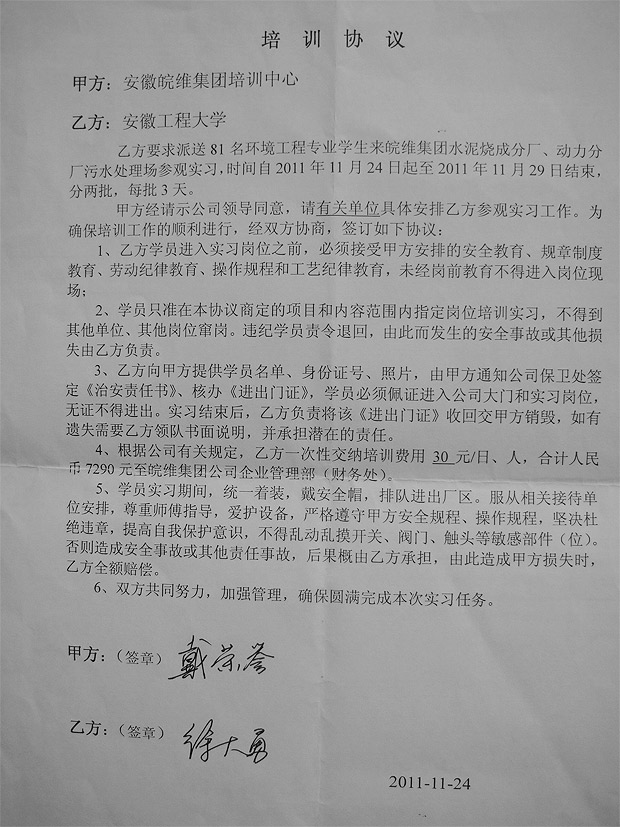 培训协议
甲方：安徽皖维集团培训中心
乙方：安徽工程大学
乙方要求派送 81 名环境工程专业学生来皖维集团水泥烧成分厂、动力分
厂污水处理场参观实习，时间自 2011 年 11 月 24 日起至 2011 年 11 月 29 日结束，
分两批，每批 3 天。
甲方经请示公司领导同意，请有关单位具体安排乙方参观实习工作。为
确保培训工作的顺利进行，经双方协商，签订如下协议：
1、乙方学员进入实习岗位之前，必须接受甲方安排的安全教育、规章制度
教育、劳动纪律教育、操作规程和工艺纪律教育，未经岗前教育不得进入岗位现
场；
2、学员只准在本协议商定的项目和内容范围内指定岗位培训实习，不得到
其他单位、其他岗位窜岗。违纪学员责令退回，由此而发生的安全事故或其他损
失由乙方负责。
3、乙方向甲方提供学员名单、身份证号、照片，由甲方通知公司保卫处签
定《治安责任书》、核办《进出门证》，学员必须佩证进入公司大门和实习岗位，
无证不得进出。实习结束后，乙方负责将该《进出门证》收回交甲方销毁，如有
遗失需要乙方领队书面说明，并承担潜在的责任。
4、根据公司有关规定，乙方一次性交纳培训费用 30 元/日、人，合计人民
币 7290 元至皖维集团公司企业管理部（财务处）。
5、学员实习期间，统一着装，戴安全帽，排队进出厂区。服从相关接待单
位安排，尊重师傅指导，爱护设备，严格遵守甲方安全规程、操作规程，坚决杜
绝违章，提高自我保护意识，不得乱动乱摸开关、阀门、触头等敏感部件（位）。
否则造成安全事故或其他责任事故，后果概由乙方承担，由此造成甲方损失时，
乙方全额赔偿。
6、双方共同努力，加强管理，确保圆满完成本次实习任务。
甲方：（签章）戴荣誉
乙方：（签章）徐大勇
2011-11-24